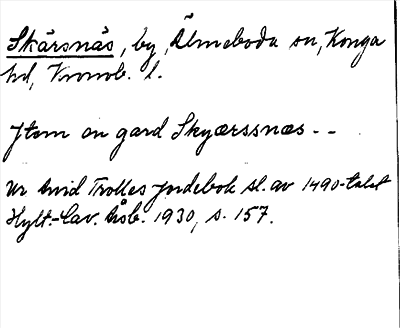 Skärsnäs, by, Älmeboda sn, Konga
hd, Kronob. l.
Jtem en gard Skyærssnæs - -
Ur Arvid Trolles jordebok sl. av 1490-talet
Hylt.-Cav. Åsb. 1930, s. 157.